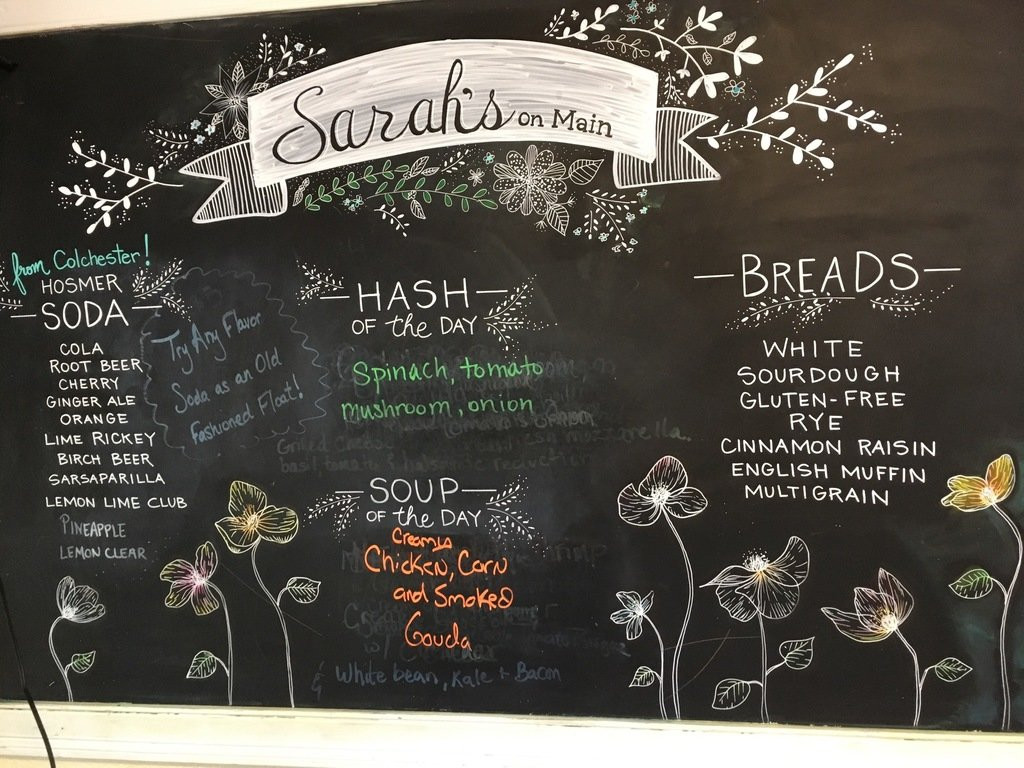 Sarah's on Main
from Colchester!
HOSMER
SODA
COLA
ROOT BEER
CHERRY
GINGER ALE
ORANGE
LIME RICKEY
BIRCH BEER
SARSAPARILLA
LEMON LIME CLUB
PINEAPPLE
LEMON CLEAR
Try Any Flavor
Soda as an Old
Fashioned Float!
HASH
OF the DAY
Spinach, tomato
mushroom, onion
SOUP
OF the DAY
Creamy
Chicken, Corn
and Smoked
Gouda
& White bean, Kale + Bacon
BREADS
WHITE
SOURDOUGH
GLUTEN-FREE
RYE
CINNAMON RAISIN
ENGLISH MUFFIN
MULTIGRAIN